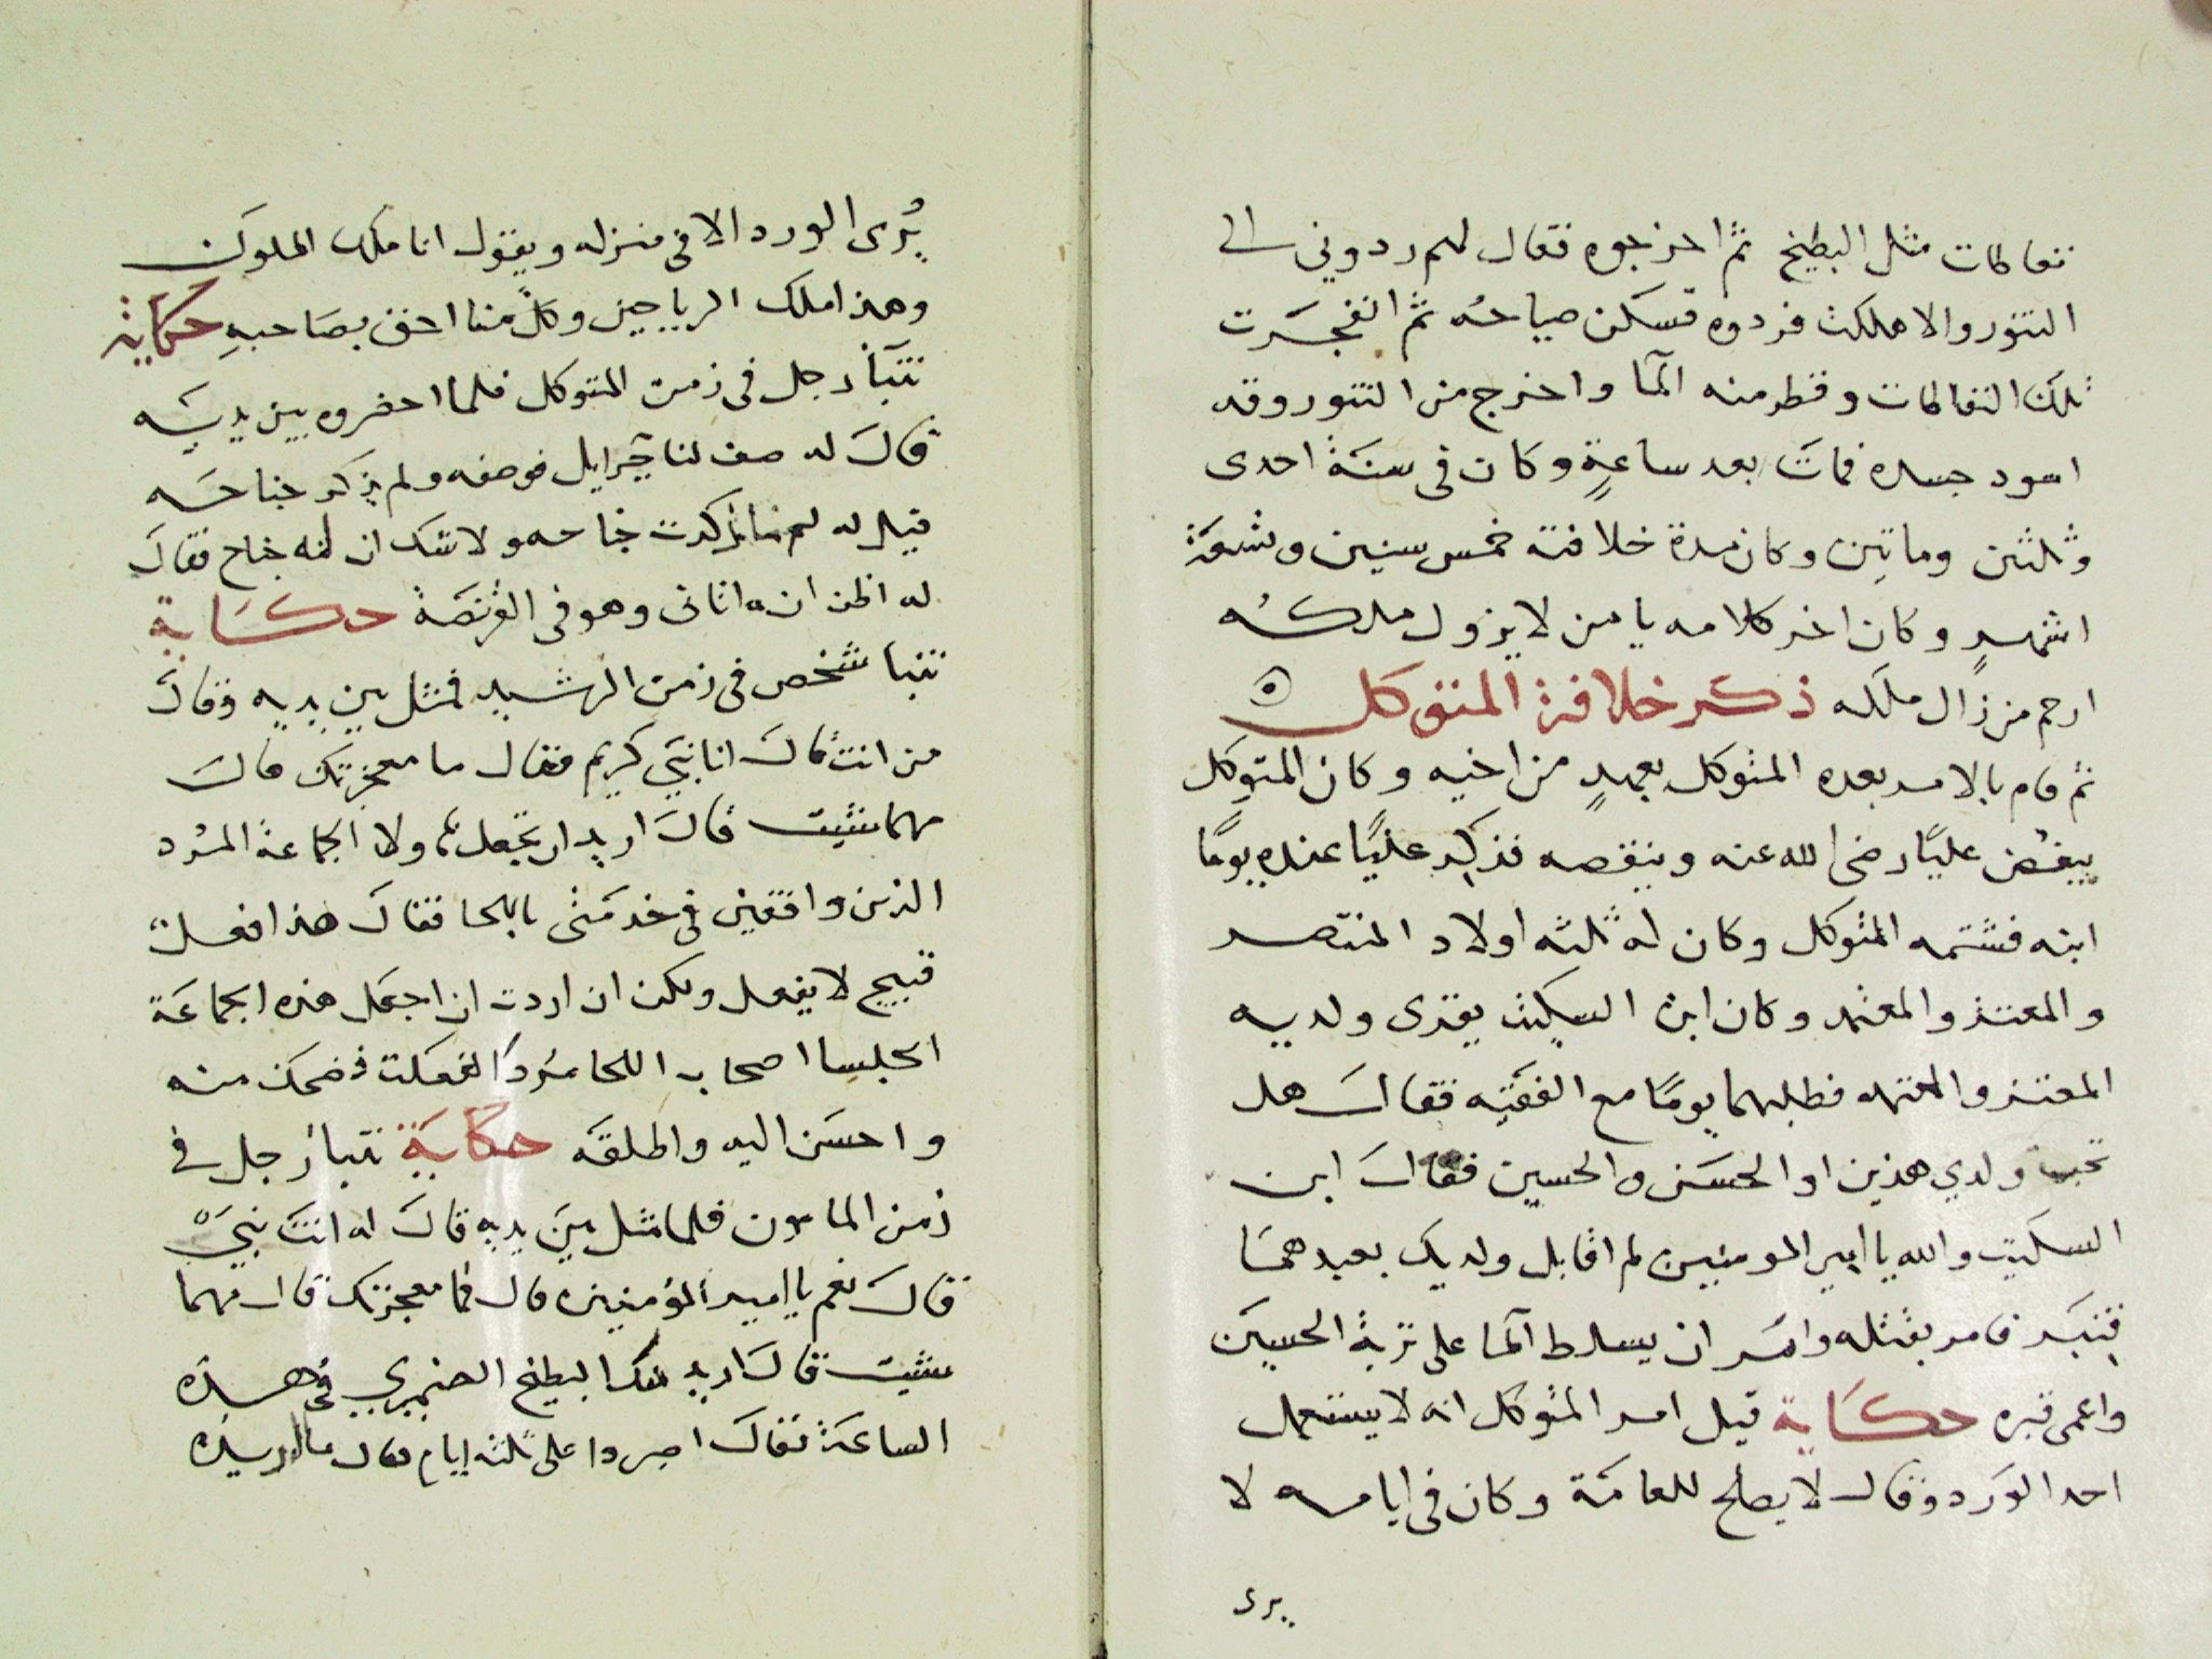 نفاطات مثل البطيخ ثم اخرجوه فقال لهم ردوني الى
التنور والا هلكت فردوه فسكن صياحه ثم انفجرت
تلك النفاطات وقطر منه الما واخرج من التنور وقد
اسود جسده فمات بعد ساعةٍ وكان في سنة احدى
وثلثين وماتين وكان مدة خلافته خمس سنين وتسعة
اشهرٍ وكان اخر كلامه يا من لا يزول ملكه
ارحم من زال ملكه ذكر خلافة المتوكل
ثم قام بالامر بعده المتوكل بعهدٍ من اخيه وكان المتوكل
يبغض عليًا رضى الله عنه وينقصه فذكر عليًا عنده يومًا
ابنه فشتمه المتوكل وكان له ثلثه اولاد المنتصر
والمعتز والمعتمد وكان ابن السكيت يقرى ولديه
المعتز والمعتمد فطلبهما يومًا مع الفقيه فقال هل
تحب ولدي هذين او الحسن والحسين فقال ابن
السكيت والله يا امير المومنين لم اقابل ولديك بعبدهما
قنبر فامر بقتله وامر ان يسلط الما على تربة الحسين
واعمى قبره حكاية قيل امر المتوكل انه لا يستعمل
احد الورد وقال لا يصلح للعامة وكان في ايامه لا
يرى
يُرى الورد الا في منزله ويقول انا ملك الملوك
وهذا ملك الرياحين وكلٌ منا احق بصاحبهِ حكاية
تنبأ رجل في زمن المتوكل فلما احضروه بين يديه
قال له صف لنا جبرايل فوصفه ولم يذكر جناحه
فقيل له لم ما ذكرت جناحه ولا شك ان له جناح فقال
له اظن انه اتاني وهو في القرنصة حكاية
تنبا شخص في زمن الرشيد فمثل بين يديه وقال
من انت قال انا نبي كريم فقال ما معجزتك قال
مهما شيت قال اريد ان تجعل هولا الجماعة المرد
الذين واقفين في خدمتي باللحا فقال هذا فعل
قبيح لا يفعل ولكن ان اردت ان اجعل هذه الجماعة
الجلسا اصحاب اللحا مردًا لفعلت فضحك منه
واحسن اليه واطلقه حكاية تنبأ رجل في
زمن المامون فلما مثل بين يديه قال له انت نبي
قال نعم يا امير المؤمنين قال فما معجزتك قال مهما
شيت قال اريد منك البطيخ الصنمبري في هذه
الساعة فقال اصبروا على ثلثه ايام فقال ما اريده